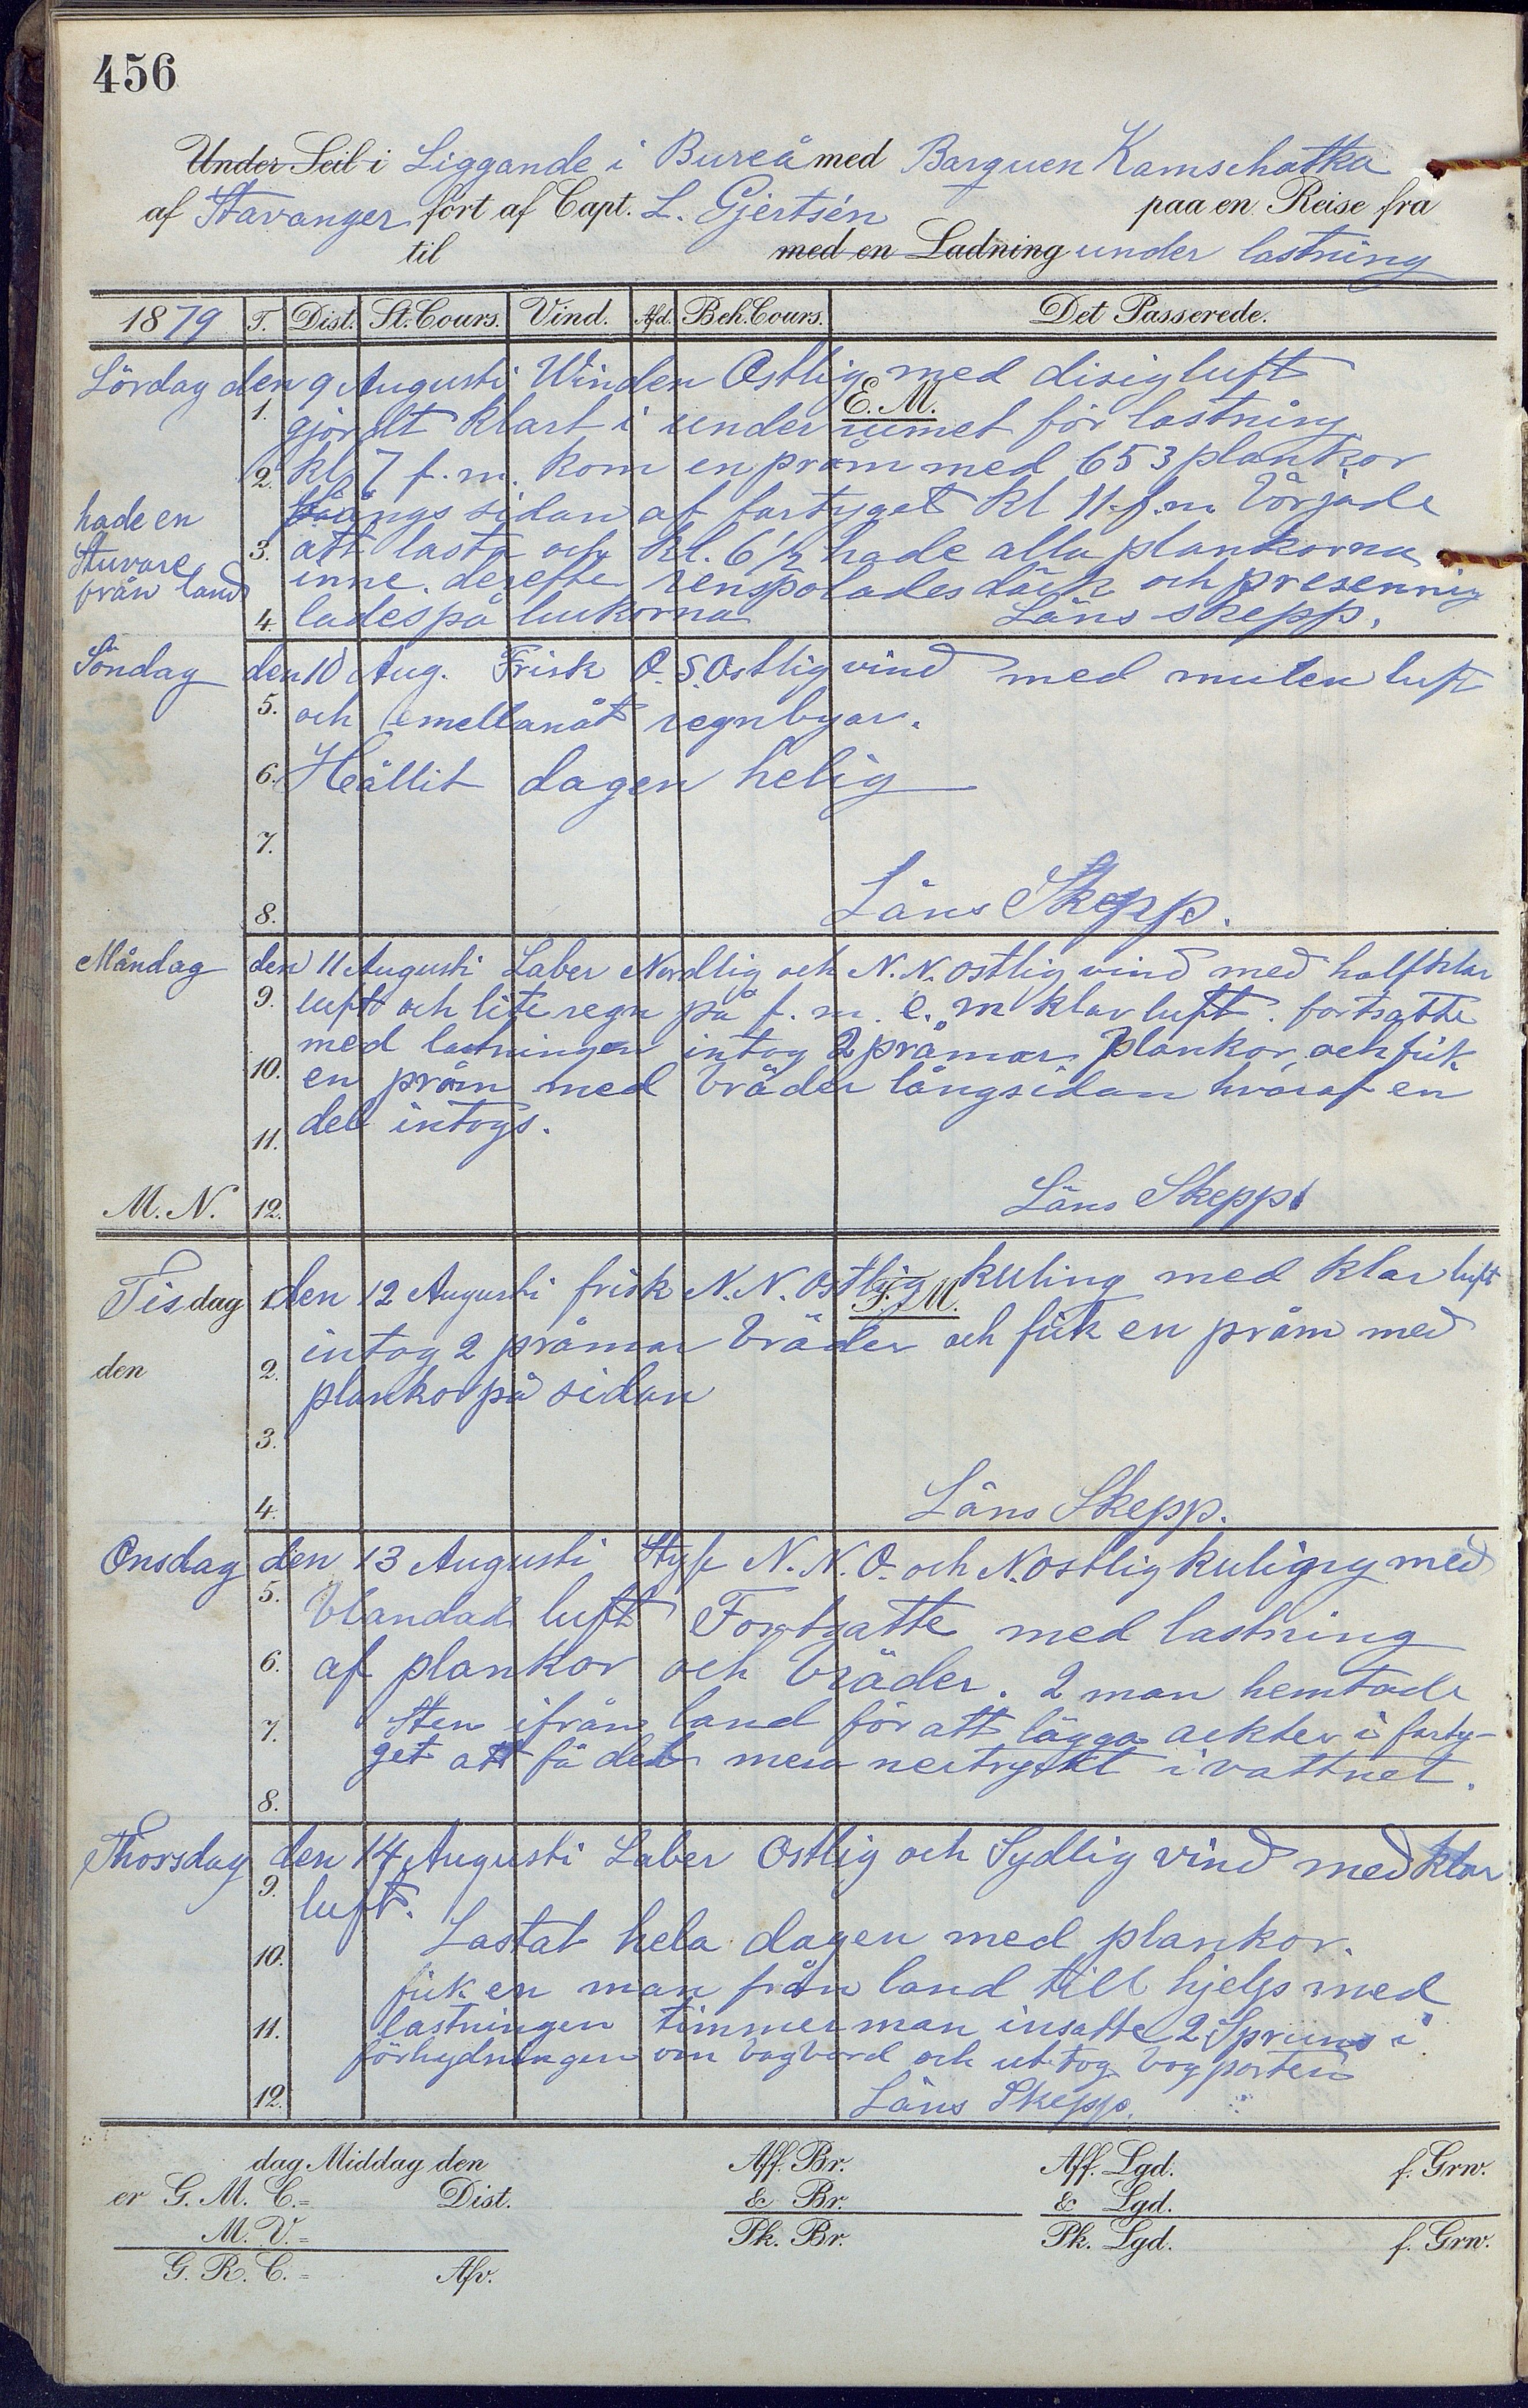 456
Under Seil i Liggande i Bureå med Barquen Kamschatka
af Stavanger fört af Capt. L. Gjertsén paa en Reise fra
til med en Ladning under lastning
1879 T. Dist. St. Cours. Vind. Afd. Beh. Cours. Det Passerede.
Lördag den 9 Augusti Winden Ostlig med disig luft
E. M.
1. gjordt klart i underrumet för lastning
2. kl. 7 f. m. kom en pråm med 653 plankor
långs sidan af fartyget kl 11 f. m. började
hade en
Stuvare
från land
3. att lasta och kl. 6 1/2 hade alla plankorna
inne. derefter renspolades däck och presenning
4. lades på luckorna Läns skepp.
Söndag den 10 Aug. Frisk O. S. Ostlig vind med mulen luft
5. och emellanåt regnbyar.
6. Hållit dagen helig
7.
8. Läns Skepp.
Måndag den 11 Augusti Laber Nordlig och N. N. ostlig vind med halfklar
9. luft och lite regn på f. m. e. m klar luft. fortsatte
med lastningen intog 2 pråmar plankor och fick
10. en pråm med bräder långsidan hvaraf en
11. del intogs.
M. N. 12. Läns Skepp
Tisdag 1. den 12 Augusti frisk N. N. Ostlig kuling med klar luft
F. M.
intog 2 pråmar bräder och fick en pråm med
den 2.
plankor på sidan
3.
4. Läns Skepp.
Onsdag den 13 Augusti Styf N. N. O. och N. ostlig kuligng med
5. blandad luft Fortsatte med lastning
6. af plankor och bräder. 2 man hemtade
7. Sten ifrån land för att lägga ackter i farty-
get att få det mera nertryckt i vattnet.
8.
Thorsdag den 14 Augusti Laber Ostlig och Sydlig vind med klar
9. luft.
10. Lastat hela dagen med plankor.
fick en man från land till hjelp med
11. lastningen timmerman insatte 2 Spruns i
förhydningen om bagbord och uttog bogporten
12. Läns Skepp.
dag Middag den Aff. Br. Aff. Lgd. f. Grw.
er G. M. C. = Dist. & Br. & Lgd.
M. V. = Pk. Br. Pk. Lgd. f. Grw.
G. R. C. = Afv.